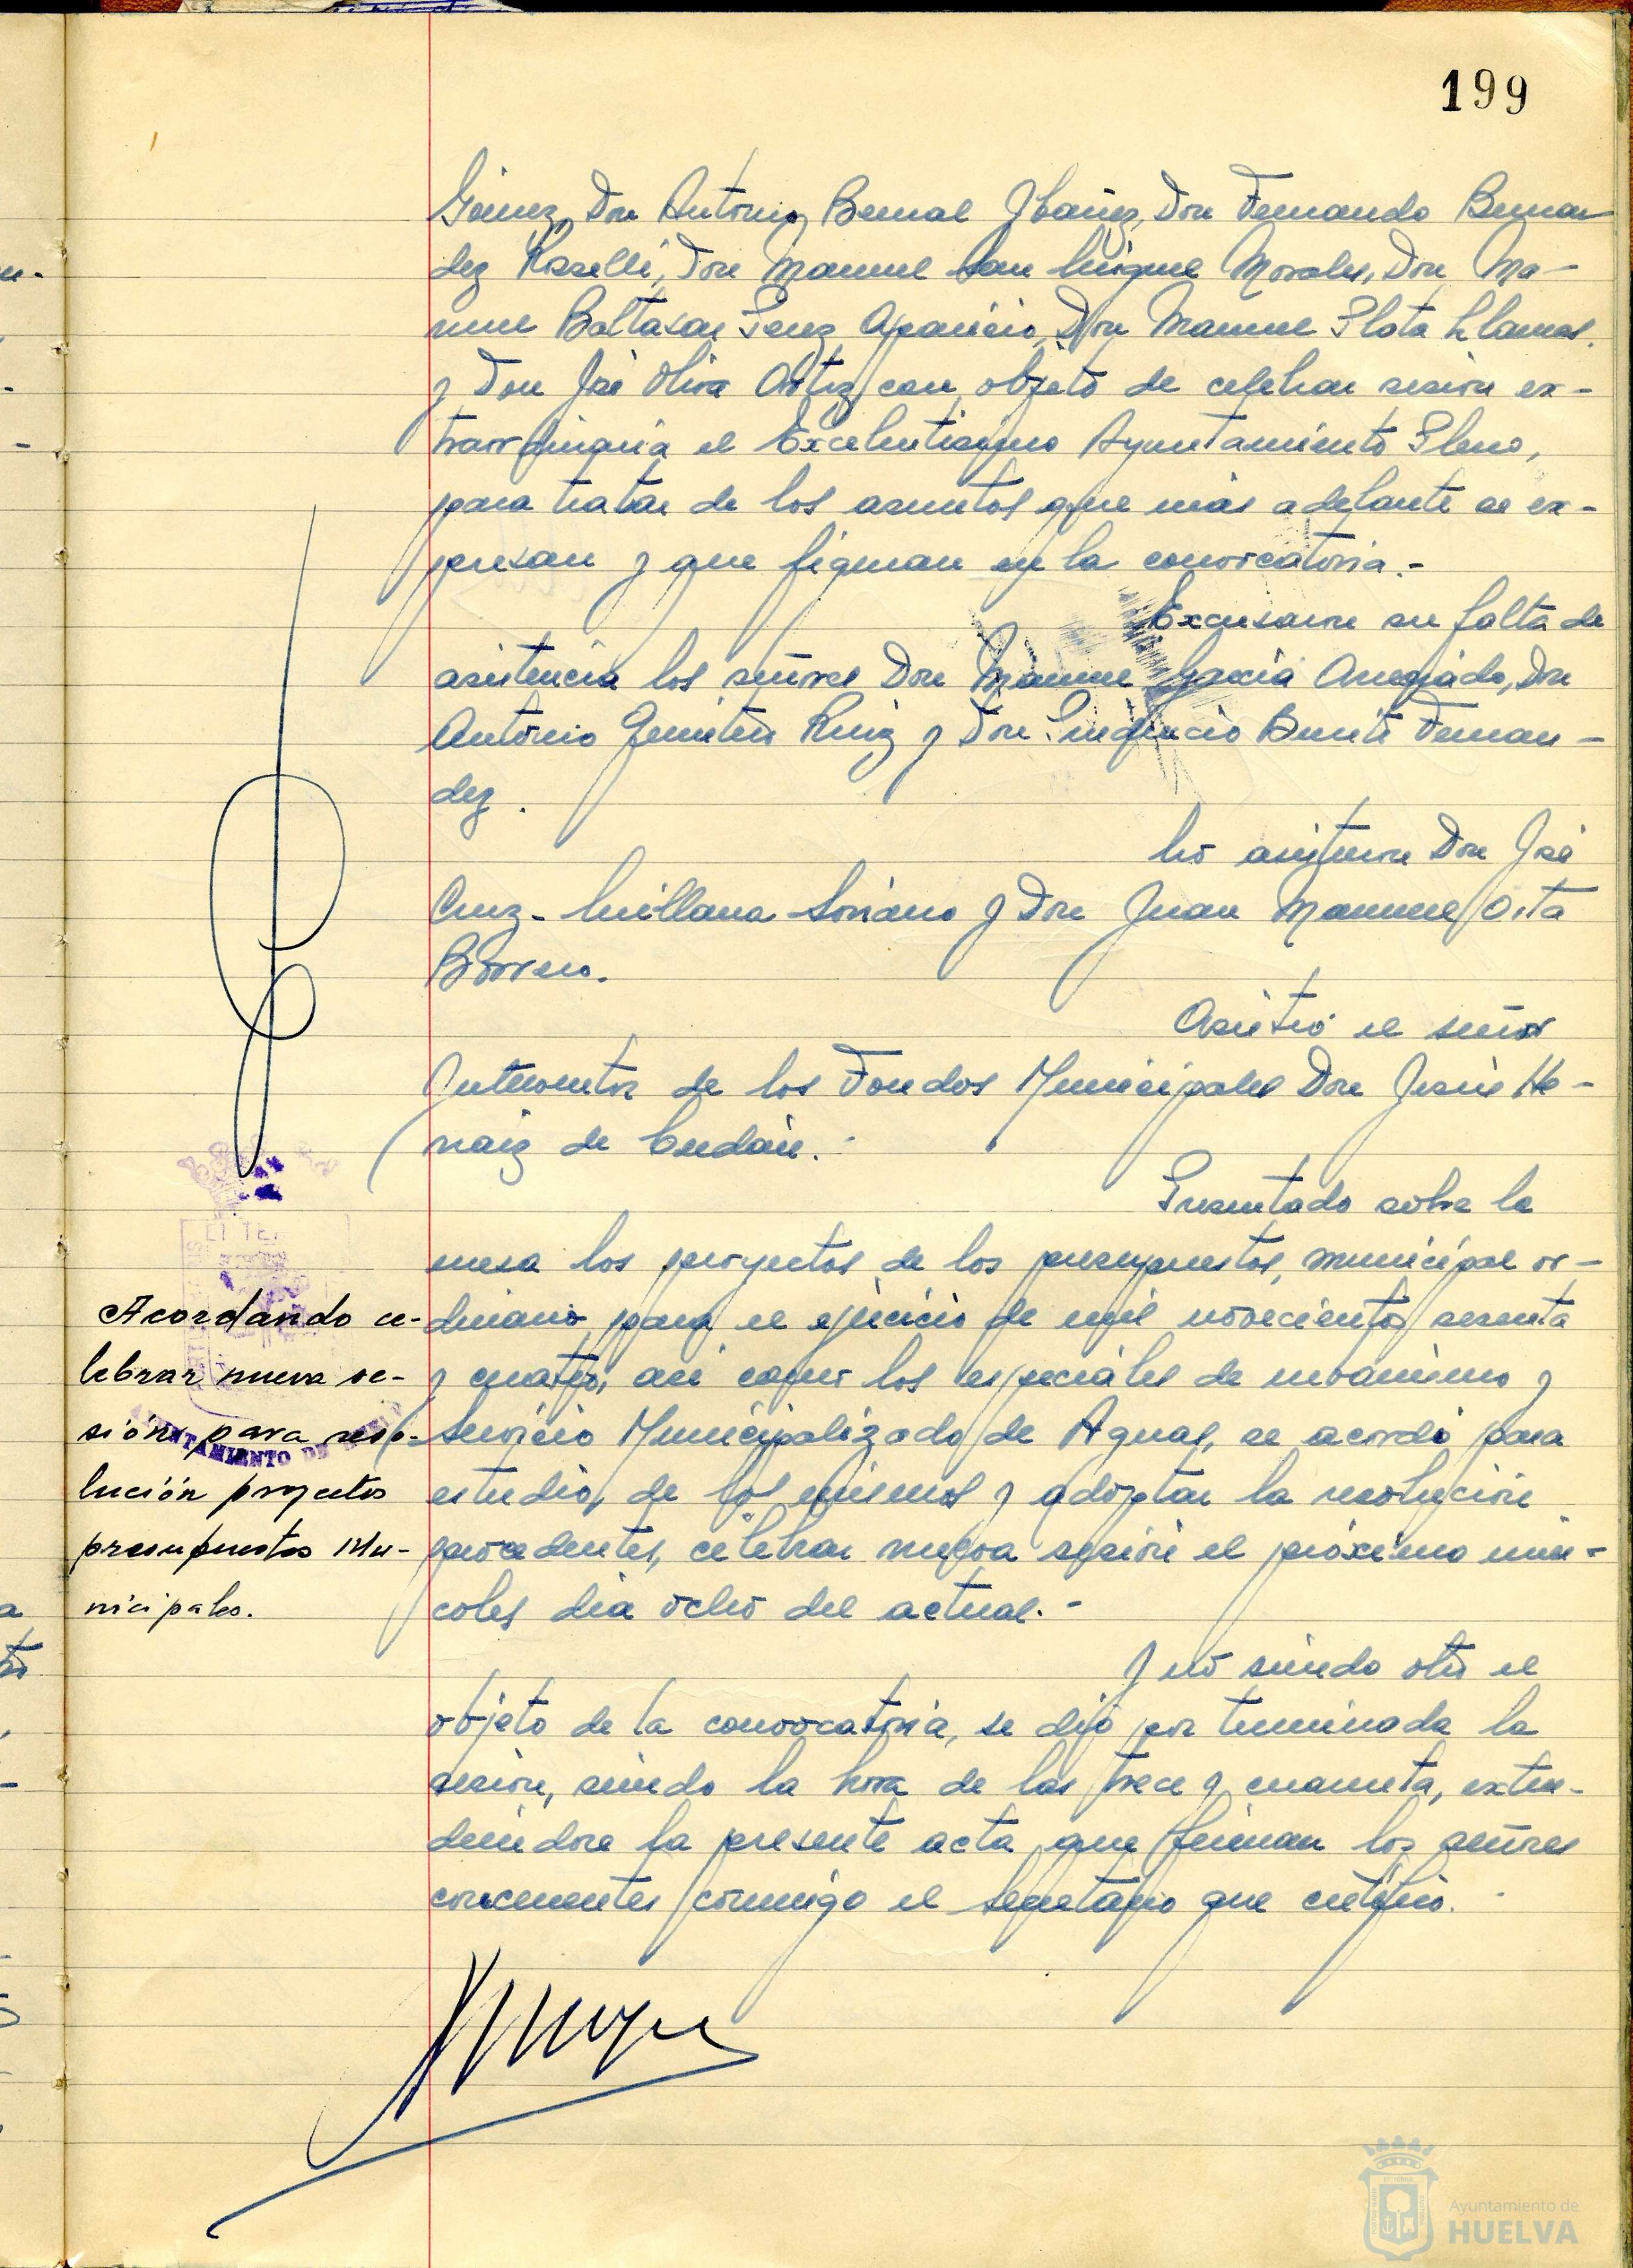 199
Gómez, Don Antonio Bernal Ybañez, Don Fernando Bernan
dez Rosselli, Don Manuel San Miguel Morales, Don Ma-
nuel Baltasar Perez Aparicio, Don Manuel Plata Llamas
y Don José Oliva Ortiz, con objeto de celebrar sesión ex-
traordinaria el Excelentisimo Ayuntamiento Pleno,
para tratar de los asuntos que más adelante se ex-
presan y que figuran en la convocatoria.-
Excusaron su falta de
asistencia los señores Don Manuel García Don
Antonio Ruiz y Don Benito Fernan-
dez.
No asistieron Don José
Cruz-Millana Soriano y Don Juan Manuel Orta
Borrero.
Asistió el señor
Interventor de los Fondos Municipales Don Jesús He-
raiz de
Presentado sobre la
mesa los proyectos de los presupuestos, municipal or-
dinario, para el ejercicio de mil novecientos sesenta
y cuatro, asi como los especiales de urbanismo y
Servicio Municipalizado de Aguas, se acordó para
estudio, de los mismos y adoptar la resolución
procedentes, celebrar nueva sesión el próximo miér-
coles dia ocho del actual.-
Y nó siendo otro el
objeto de la convocatoria, se dió por terminada la
sesion, siendo la hora de las trece y cuarenta, exten-
diendose la presente acta que firman los señores
concurrentes conmigo el Secretario que certifico.
Acordando ce-
lebrar nueva se-
sión para reso-
lución proyectos
presupuestos Mu-
nicipales.
AYUNTAMIENTO DE
Ayuntamiento de
HUELVA